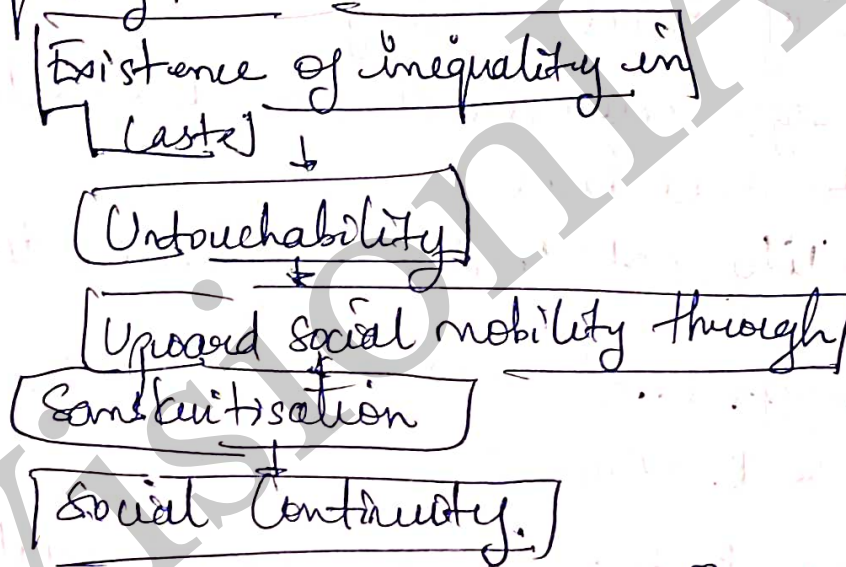 Existence of inequality in
Caste
Untouchability
Upward social mobility through
Sanskritisation
Social Continuity.
VisionIA